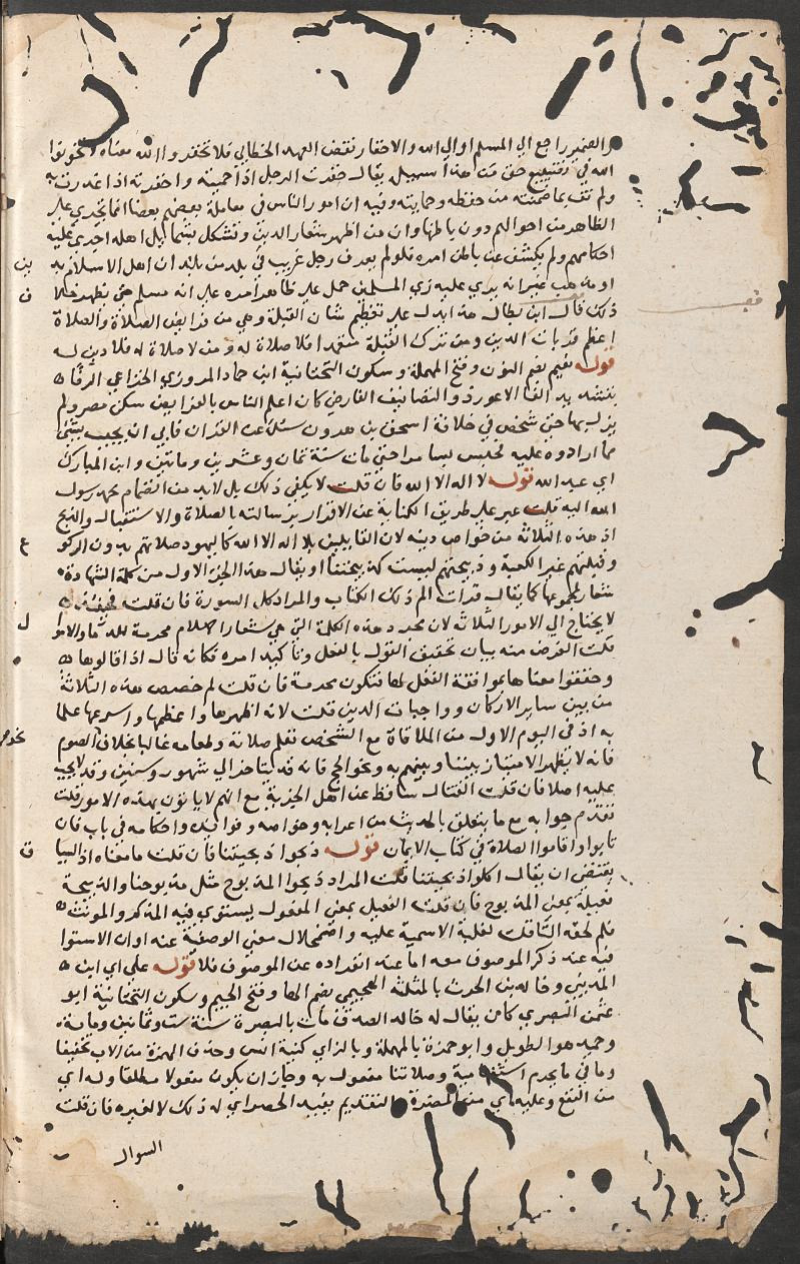 والضمير راجع الي المسلم او الي الله والاخفار نقض العهد الخطابي فلا تخفروا الله معناه لا تخونوا
الله في تضييع حق من هذا سبيله يقال خفرت الرجل اذا حميته واخفرته اذا غدرت به
ولم تف بما ضمنته من حفظه وحمايته وفيه ان امور الناس في معاملة بعضهم بعضا انما تجري علي
الظاهر من احوالهم دون باطنها وان من اظهر شعار الدين وتشكل بشمايل اهله اجري عليه
احكامهم ولم يكشف عن باطن امره فلو لم يعرف رجل غريب في بلد من بلدان اهل الاسلام بد
او مذهب غير انه يري عليه زي المسلمين حمل علي ظاهر امره علي انه مسلم حتي يظهر خلا
ذلك قال ابن بطال هذا يدل علي تعظيم شان القبلة وهي من فرايض الصلاة والصلاة
اعظم قربات الدين ومن ترك القبلة متعمدا فلا صلاة له ومن لا صلاة له فلا دين له
قوله نعيم بضم النون وفتح المهملة وسكون التحتانية ابن حماد المروزي الخزاعي الرفا
بتشديد الفا الاعور ذو التصانيف الفارض كان اعلم الناس بالفرايض سكن مصر ولم
يزل بها حتي شخص في خلافة اسحق بن هرون سئل عن القران فابي ان يجيب بشي
مما ارادوه عليه فحبس بسامرا حتي مات سنة ثمان وعشرين ومايتين وابن المبارك
اي عبد الله قوله لا اله الا الله فان قلت لا يكفي ذلك بل لابد من انضمام محمد رسول
الله اليه قلت عبر علي طريق الكناية عن الاقرار برسالته بالصلاة والاستقبال والذبح
اذ هذه الثلاثة من خواص دينه لان القايلين بلا اله الا الله كاليهود صلاتهم بدون الركو
وقبلتهم غير الكعبة وذبيحتهم ليست كذبيحتنا او يقال هذا الجزء الاول من كلمة الشهادة
شعار لمجموعها كما يقال قرات الم ذلك الكتاب والمراد كل السورة فان قلت فحينئذ
لا يحتاج الي الامور الثلاثة لان مجرد هذه الكلمة التي هي شعار الاسلام محرمة للدما والامو
قلت الغرض منه بيان تحقيق القول بالفعل وتاكيد امره فكانه قال اذا قالوها
وحققوا معناها بموافقة الفعل لها فتكون محرمة فان قلت لم خصص هذه الثلاثة
من بين ساير الاركان وواجبات الدين قلت لانه اظهرها واعظمها واسرعها علما
به اذ في اليوم الاول من الملاقاة مع الشخص تعلم صلاته وطعامه غالبا بخلاف الصوم
فانه لا يظهر الامتياز بيننا وبينهم به ونحو الحج فانه قد يتاخر الي شهور وسنين وقد لا يجب
عليه اصلا فان قلت القتال ساقط عن اهل الجزية مع انهم لا ياتون بهذه الامور قلت
تقدم جوابه مع ما يتعلق بالحديث من اعرابه وخواصه وفوايده واحكامه في باب فان
تابوا واقاموا الصلاة في كتاب الايمان قوله ذبحوا ذبيحتنا فان قلت ما معناه اذ السيا
يقتضي ان يقال اكلوا ذبيحتنا قلت المراد ذبحوا المذبوح مثل مذبوحنا والذبيحة
فعيلة بمعني المذبوح فان قلت الفعيل بمعني المفعول يستوي فيه المذكر والمونث
فلم لحقه التا قلت لغلبة الاسمية عليه واضمحلال معني الوصفية عنه او ان الاستوا
فيه عند ذكر الموصوف معه اما عند انفراده عن الموصوف فلا قوله علي اي ابن
المديني وخالد بن الحرث بالمثلثة الهجيمي بضم الها وفتح الجيم وسكون التحتانية ابو
عثمن البصري كان يقال له خالد الصدق مات بالبصرة سنة ست وثمانين وماية
وحميد هو الطويل وابو حمزة بالمهملة وبالزاي كنية انس وحذف الهمزة من الاب تخفيفا
وما في ما يحرم استفهامية وصلاتنا مفعول به وجاز ان يكون مفعولا مطلقا وله اي
من النفع وعليه اي من المضرة والتقديم يفيد الحصر اي له ذلك لا لغيره فان قلت
السوال
ين
ف
ع
ل
ق